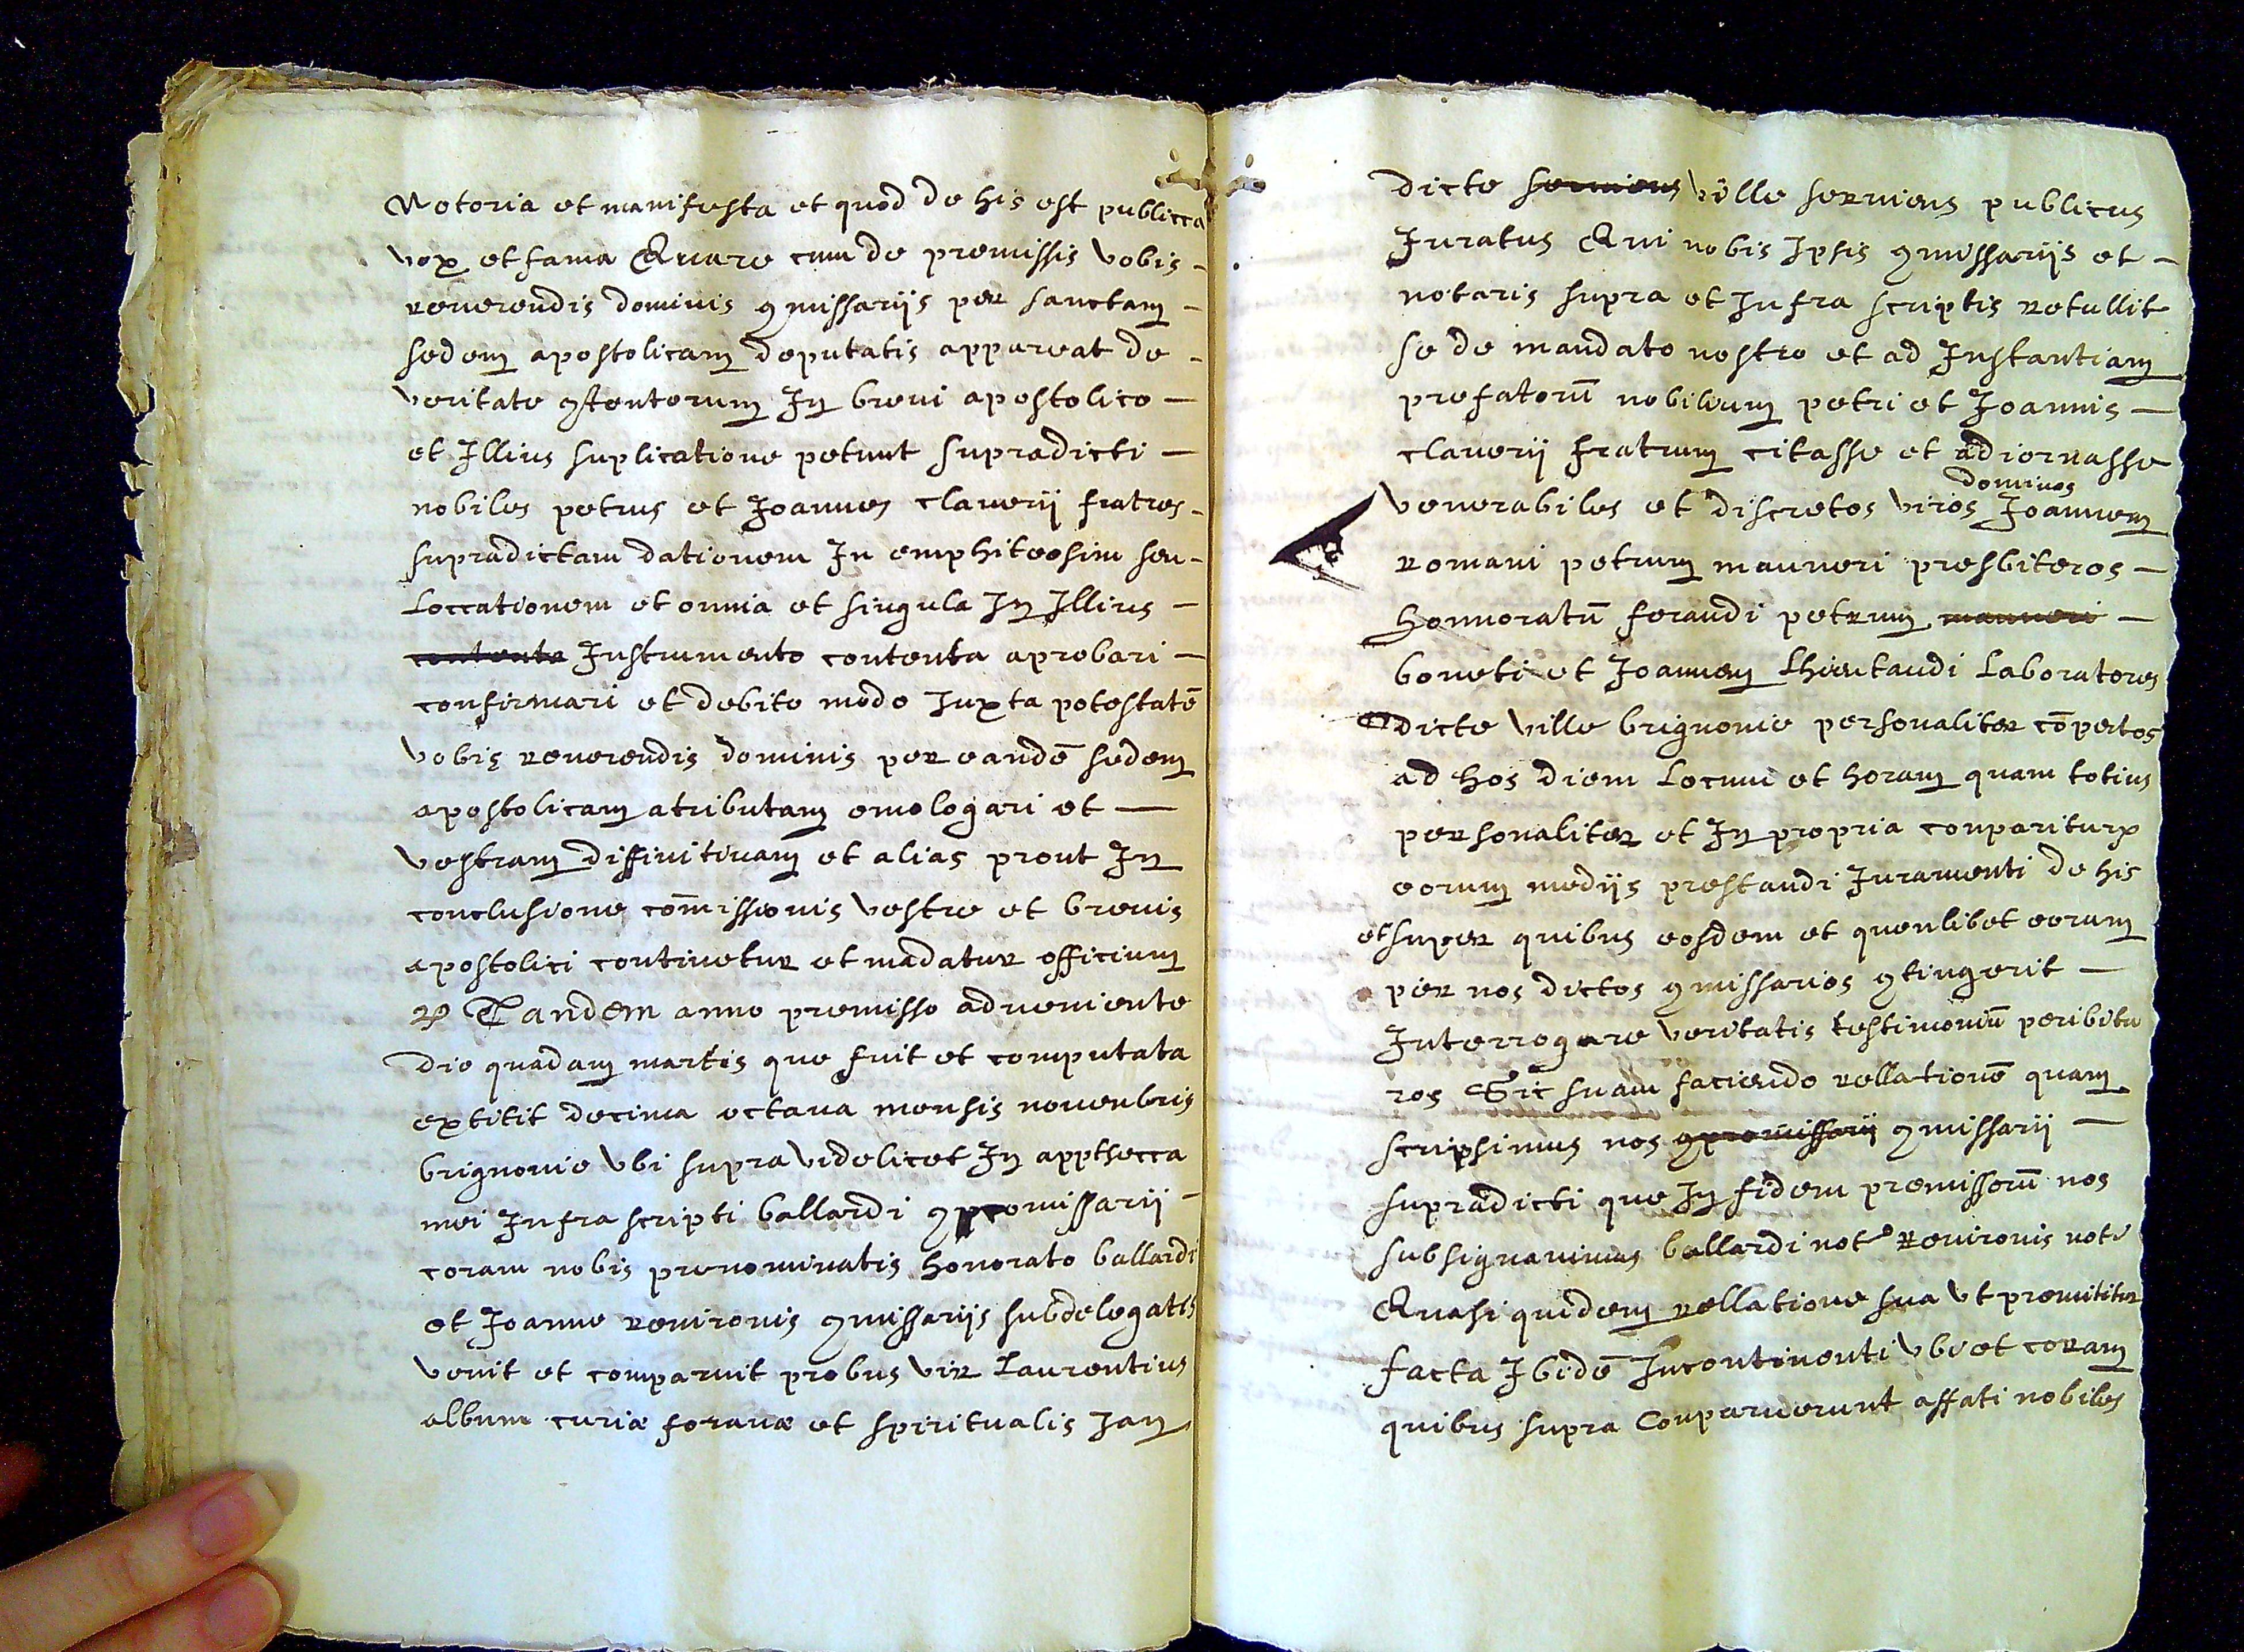 Notoria et manifesta et quod de his est publicca
vox et fama Quare cum de premissis vobis -
reverendis dominis ꝯmissariis per sanctam -
sedem apostolicam deputatis appareat de -
veritate ꝯtentorum In brevi apostolico -
et Illius suplicatione petunt supradicti -
nobiles petrus et Joannes claverii fratres -
supradictam dationem In emphiteosim seu -
Loccationem et omnia et singula In Illius -
contenta Instrumento contenta aprobari -
confirmari et debito modo Juxta potestatē
vobis reverendis dominis per eandē sedem
apostolicam atributam emologari et -
vestram diffinitivam et alias prout In
conclusione com̄issionis vestre et brevis
apostolici continetur et mādatur officium
Tandem anno premisso adveniente
die quadam martis que fuit et computata
extitit decima octava mensis novenbris
brignonie Vbi supra videlicet In appthecca
mei Infra scripti ballardi ꝯpromissarii -
coram nobis prenominatis honorato ballardi
et Joanne revironis ꝯmissariis subdelegatis
venit et comparuit probus vir Laurentius
album curiæ foranæ et spiritualis Jam
dicte serviens ville serviens publicus
Juratus Qui nobis Ipsis ꝯmissariis et -
notaris supra et Infra scriptis retullit
se de mandato nostro et ad Instantiam
prefatorū nobilium petri et Joannis -
claverii fratrum citasse et adiornasse
dominos
venerabiles et discretos viros Joannem
romani petrum mauneri presbiteros -
honnoratū feraudi petrum mauneri -
boneti et Joannem Lhieutaudi Laboratores
dicte ville brignonie personaliter cōpertos
ad hos diem Locum et horam quam totius
personaliter et In propria conpariturx
eorum mediis prestandi Juramenti de his
et super quibus eosdem et quenlibet eorum
per nos dictos ꝯmissarios ꝯtingerit -
Interrogare veritatis testimoniū peribitu
ros Sic suam faciendo rellationē quam
scripsimus nos ꝯpromissarii ꝯmissarii -
supradicti que In fidem premissorū nos
subsignavimus ballardi not revironis not
Quasi quidem rellatione sua vt premititur
facta Ibidē Incontinenti Vbi et coram
quibus supra Conparuerunt affati nobiles